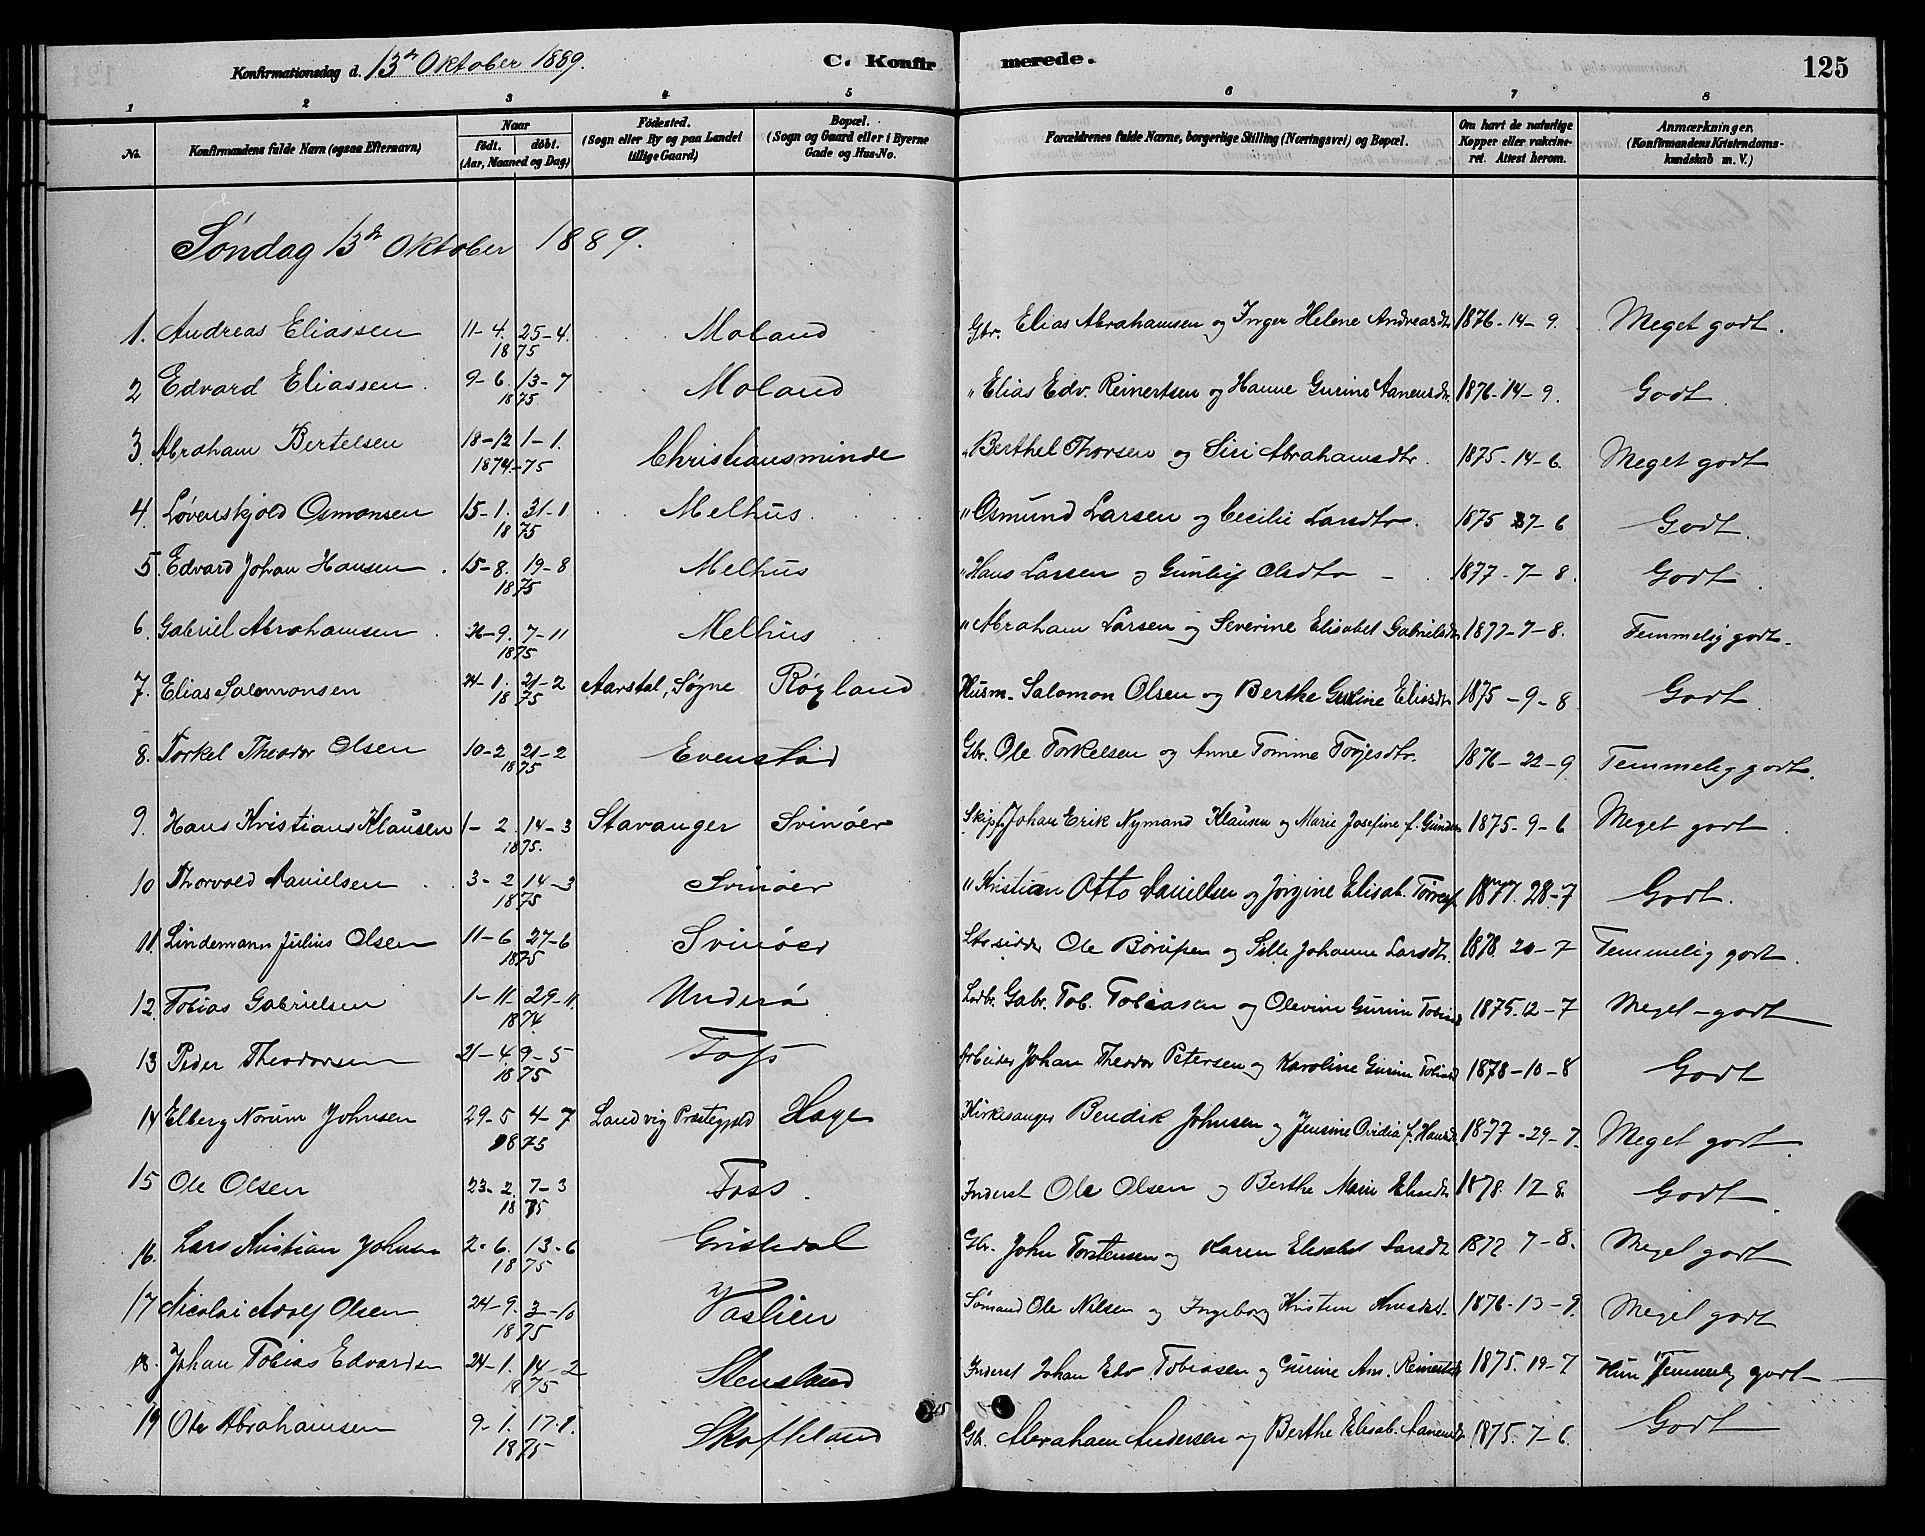 Konfirmationsdag d. 13de Oktober 1889. C. Konfirmerede. 125
1 2 3 4 5 6 7 8
No. Konfirmandens fulde Navn (ogsaa Efternavn) Naar født. døbt. (Aar, Maaned og Dag) Fødested. (Sogn eller By og paa Landet tillige Gaard) Bopæl. (Sogn og Gaard eller i Byerne Gade og Hus-No. Forældrenes fulde Navne, borgerlige Stilling (Næringsvei) og Bopæl. Om havt de naturlige Kopper eller vakcineret. Attest herom. Anmærkninger. (Konfirmandens Kristendomskundskab m. V.)
Søndag 13de Oktober 1889.
1. Andreas Eliassen 11-4. 25-4. 1875 Moland Gbr. Elias Abrahamsen og Inger Helene Andreasdtr 1876-14-9. Meget godt.
2 Edvard Eliassen. 9-6. 13-7 1875 Moland " Elias Edv. Reinertsen og Hanne Gurine Aanensdtr 1876-14-9. Godt.
3. Abraham Bertelsen 18-12 1-1. 1874-75 Christiansminde " Berthel Thorsen og Siri Abrahamsdtr. 1875-14-6. Meget godt
4. Løvenskjold Osmonsen 15-1. 31-1 1875 Melhus " Osmund Larsen og Cecilie Larsdtr. 1875 7-6 Godt.
5. Edvard Johan Hansen. 15-8. 19-8 1875 Melhus " Hans Larsen og Gunlief Olsdtr - 1877-7-8. Godt.
6. Gabriel Abrahamsen. 26-9. 7-11 1875 Melhus " Abraham Larsen og Severine Elisabet Gabrielsdtr 1877-7-8. Temmelig godt.
7. Elias Salomonsen 24-1. 21-2 1875 Aarstal, Søgne Røgland Husm. Salomon Olsen og Berthe Gurine Eliasdtr 1875-9-8 Godt
8. Torkel Theodor Olsen 10-2 21-2 1875 Evenstad Gbr. Ole Torkelsen og Anne Tomine Torjesdtr. 1876-22-9 Temmelig godt.
9. Hans Kristians Klausen 1-2. 14-3 1875. Stavanger Svinøer Skipp. Johan Erik Nymand Klausen og Marie Josefine f. Gunders 1875-9-6 Meget godt.
10 Thorvald Danielsen. 3-2 14-3 1875 Svinøer " Kristian Otto Danielsen og Jørgine Elisab. 1877. 28-7 Godt.
11. Lindemann Julius Olsen 11-6 27-6 1875 Svinøer Ole og Sille Johanne Larsdtr. 1878. 20-7 Temmelig godt.
12. Tobias Gabrielsen 1-11- 29-11. 1874 Underø Gabr. Tob. Tobiasen og Olevine Gurine Tobiasd 1875.12-7 Meget-godt
13 Peder Theodorsen 21-4. 9-5 1875 Foss Arbeider Johan Theodor Petersen og Karoline Gurine Tobiasd 1878-10-8 Godt
14 Elberg Norum Johnsen 29-5 4-7 1875 Landvig Præstegjeld Hage Kirkesanger Bendik Johnsen og Jensine Ovidia f. Hansd. 1877-29-7. Meget godt.
15 Ole Olsen 23-2. 7-3 1875 Foss. Inderst Ole Olsen og Berthe Marie 1878. 12 8. Godt
16. Lars Kristian Johnsen 2-6. 13-6 1875 Gristedal Gbr. John Torstensen og Karen Elisabet Larsdt 1877 7-8. Meget godt
17 Nicolai Adolf Olsen 24-9. 3-10 1875 Vaslien Sømand Ole Nilsen og Ingeborg Kristine 1876-13-9. Meget godt
18. Johan Tobias Edvardsen 24-1. 14-2 1875 Stensland Inderst Johan Edv Tobiasen og Gurine An. Reinertsd 1875. 19-7 Kun Temmelig godt
19 Ole Abrahamsen 9-1. 17-1. 1875 Skofteland Gb. Abraham Andersen og Berthe Elisab. Aanensdt 1875. 7-6. Godt